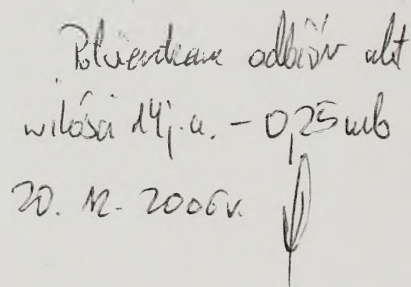 Potwierdzam odbiór akt
w ilości 14 j.a. - 0,25 mb
20. 12. 2006 r.